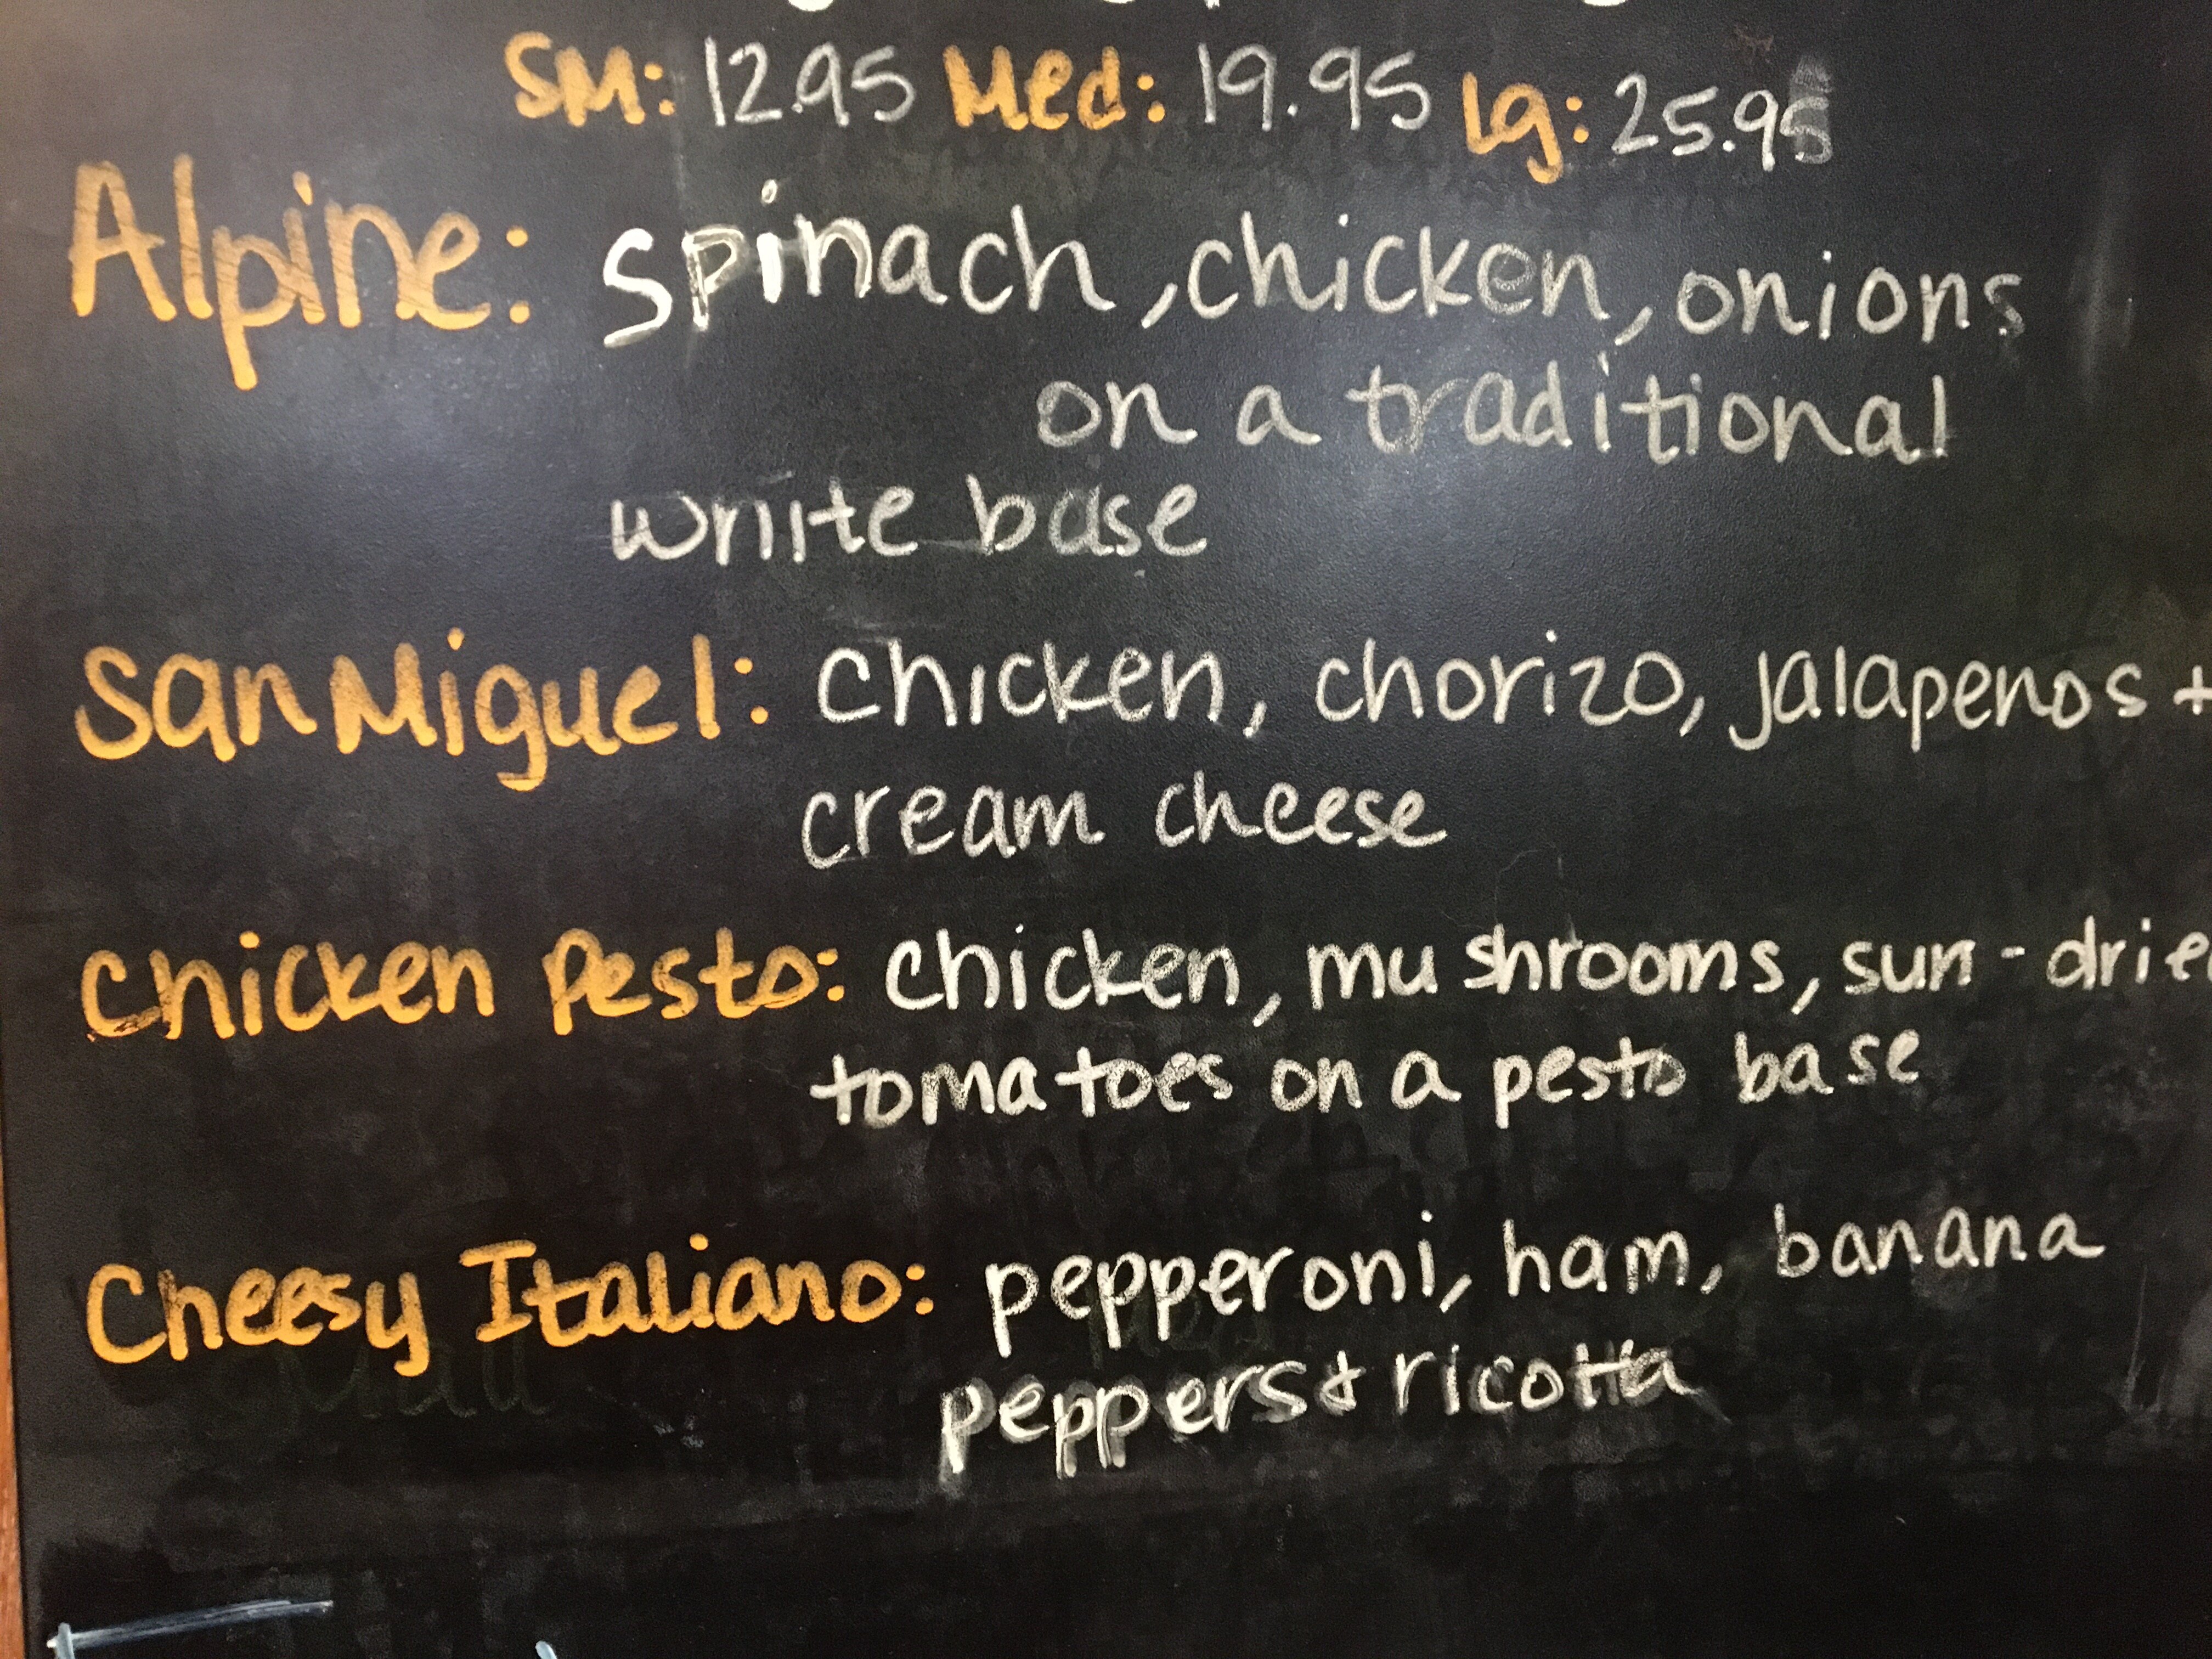 SM: 12.95 Med: 19.95 Lg: 25.95
Alpine: spinach, chicken, onions
on a traditional
white base
San Miguel: chicken, chorizo, jalapenos +
cream cheese
Chicken Pesto: chicken, mushrooms, sun-dried
tomatoes on a pesto base
Cheesy Italiano: pepperoni, ham, banana
peppers & ricotta